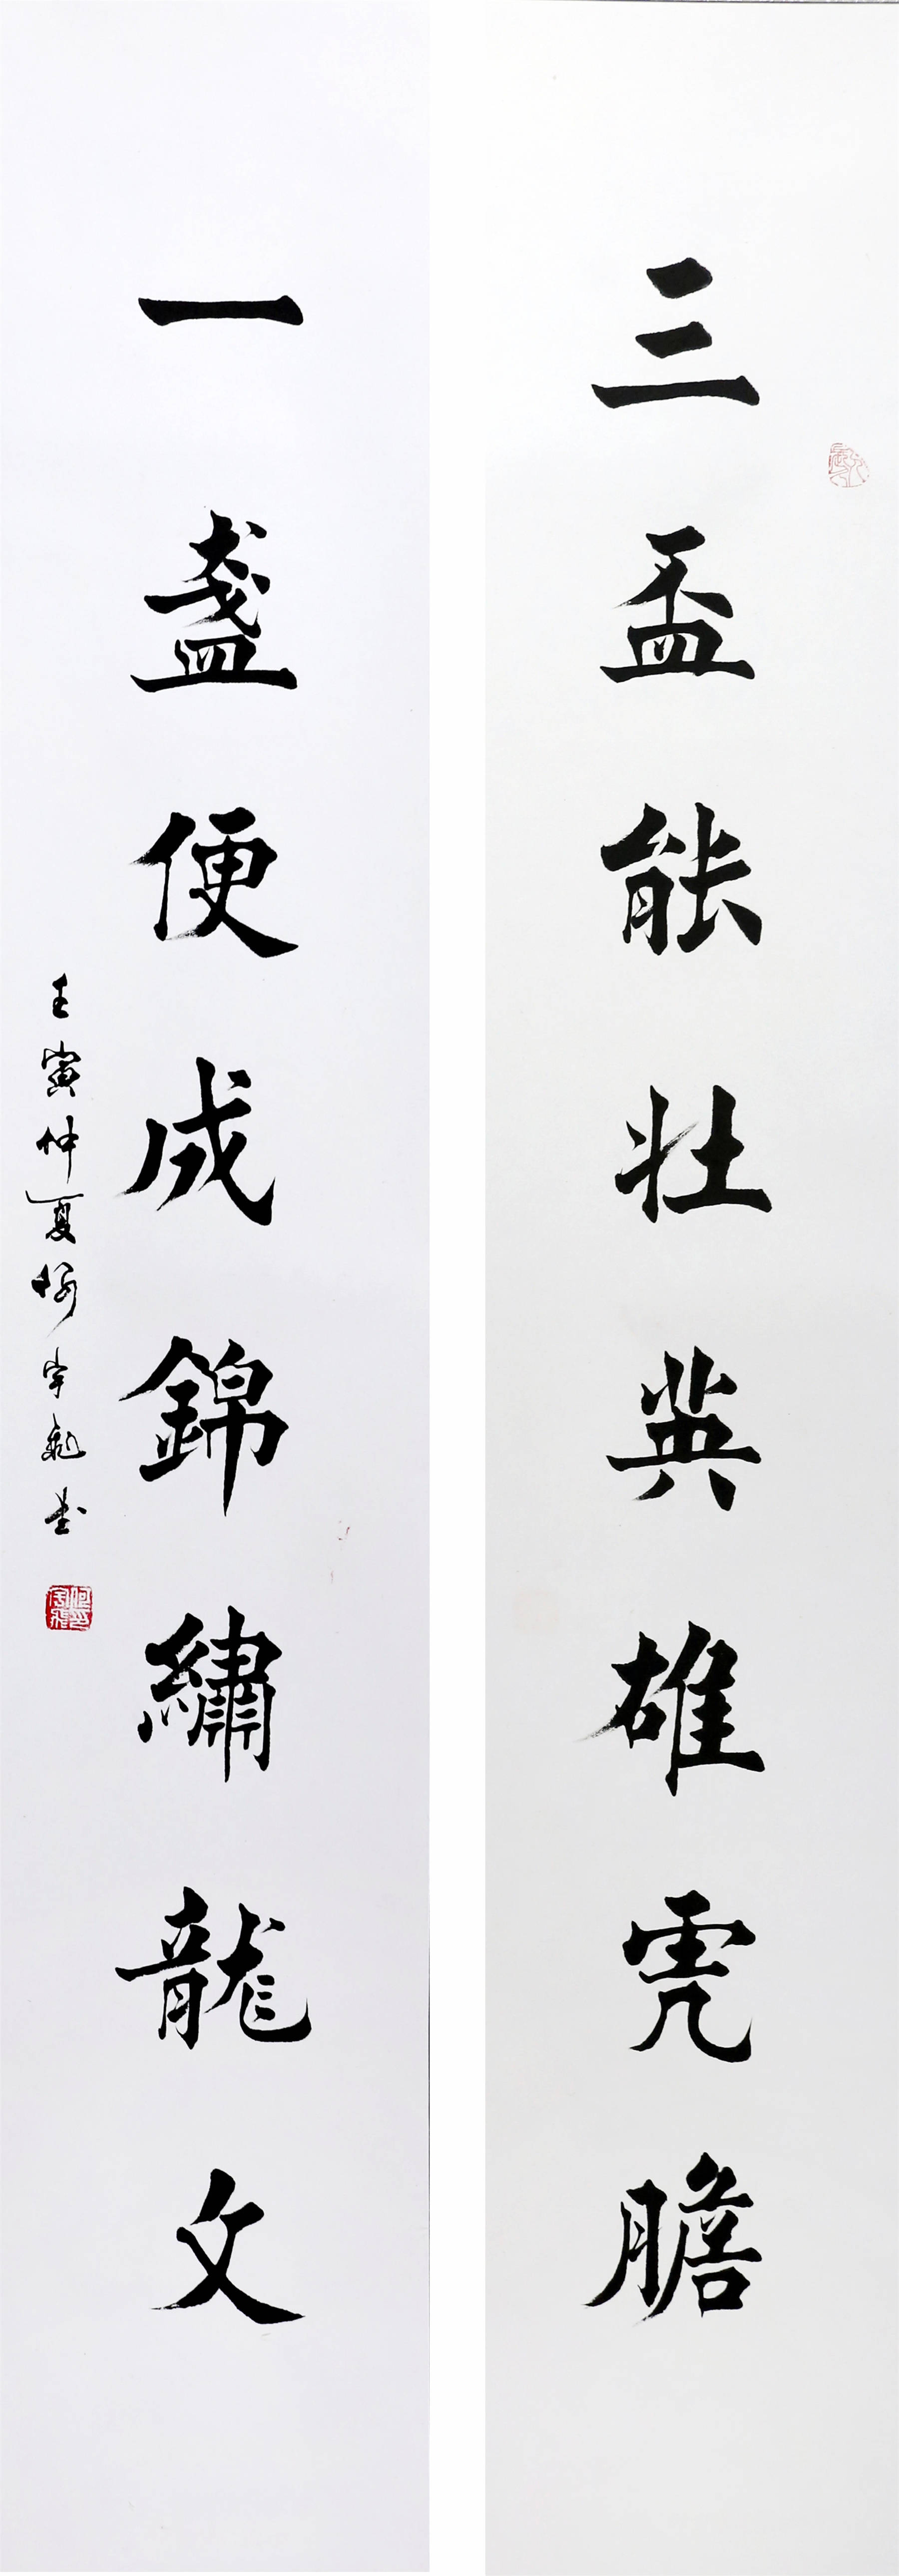 三盃能壮英雄虎膽
一盞便成錦繡龍文
壬寅仲夏何宇飛書